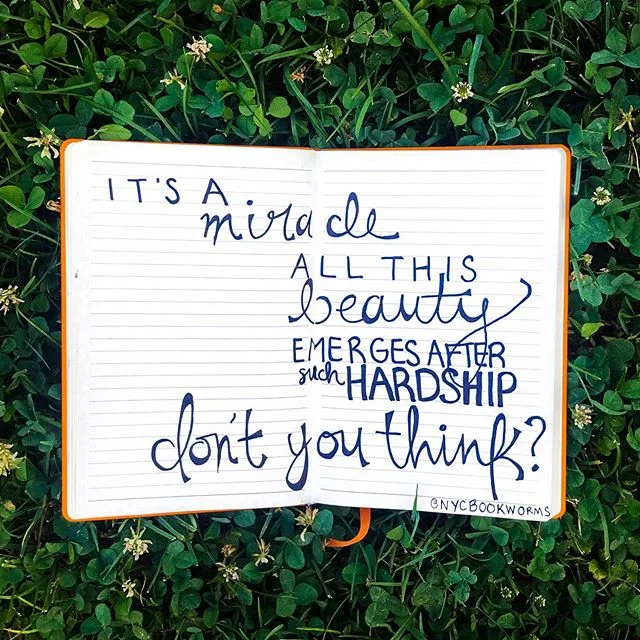 IT'S A
miracle
ALL THIS
beauty
EMERGES AFTER
such HARDSHIP
don't you think?
@NYCBOOKWORMS